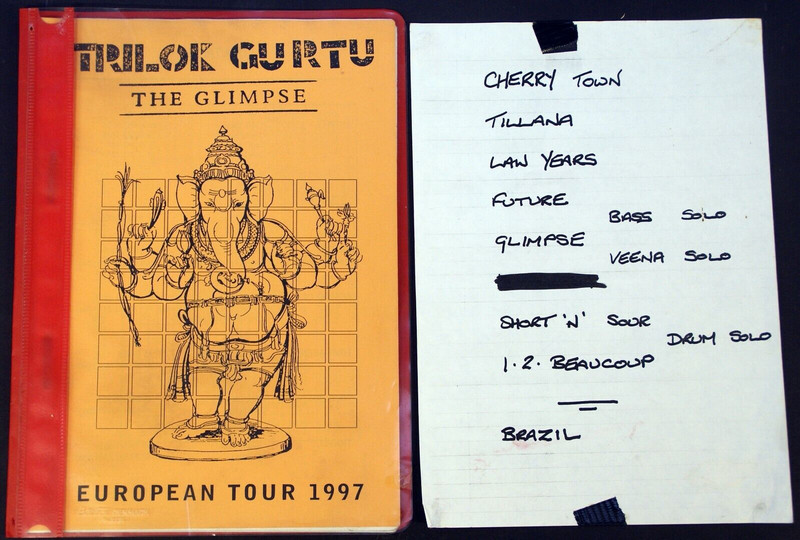 TRILOK GURTU
THE GLIMPSE
EUROPEAN TOUR 1997
CHERRY TOWN
TILLANA
LAW YEARS
FUTURE
BASS SOLO
GLIMPSE
VEENA SOLO
SHORT 'N' SOUR
DRUM SOLO
1.2. BEAUCOUP
BRAZIL